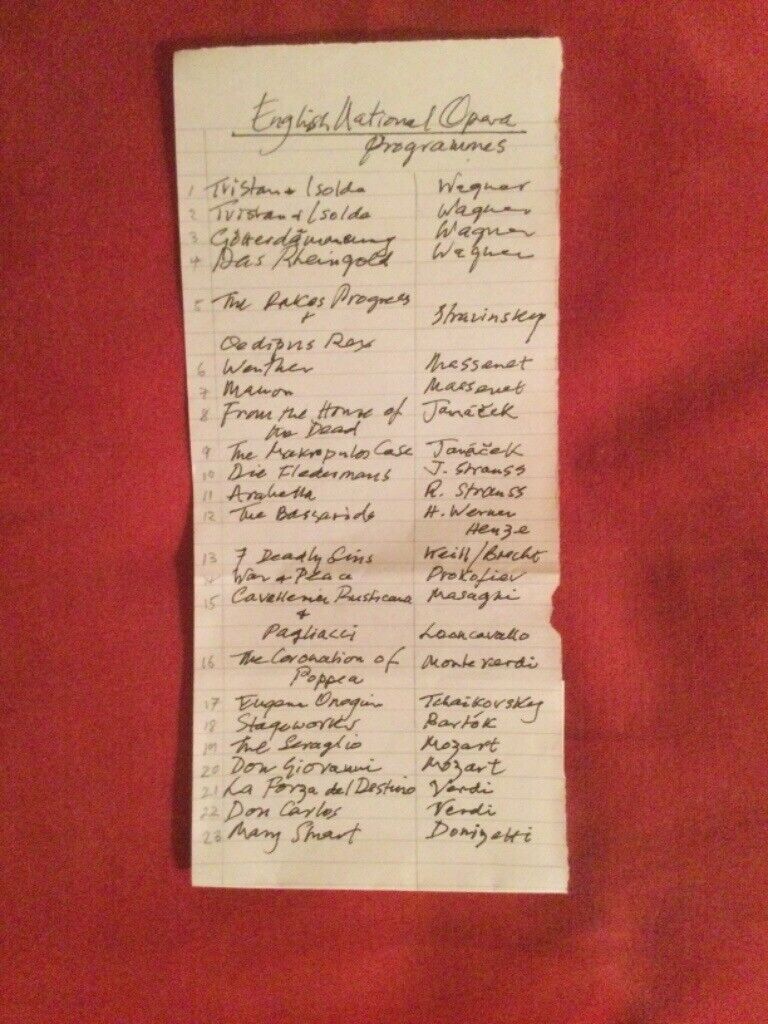 English National Opera
Programmes
1 Tristan + Isolde Wagner
2 Tristan + Isolde Wagner
3 Götterdämmerung Wagner
4 Das Rheingold Wagner
5 The Rakes Progress
+ Stravinsky
Oedipus Rex
6 Werther Massenet
7 Manon Massenet
8 From the House of Janáček
the Dead
9 The Makropulos Case Janáček
10 Die Fledermaus J. Strauss
11 Arabella R. Strauss
12 The Bassarids H. Werner
Henze
13 7 Deadly Sins Weill/Brecht
14 War + Peace Prokofiev
15 Cavelleria Rusticana Masagni
+
Pagliacci Leoncavallo
16 The Coronation of Monteverdi
Poppea
17 Eugene Onegin Tchaikovskey
18 Stageworks Bartók
19 The Seraglio Mozart
20 Don Giovanni Mozart
21 La Forza del Destino Verdi
22 Don Carlos Verdi
23 Mary Stuart Donizetti